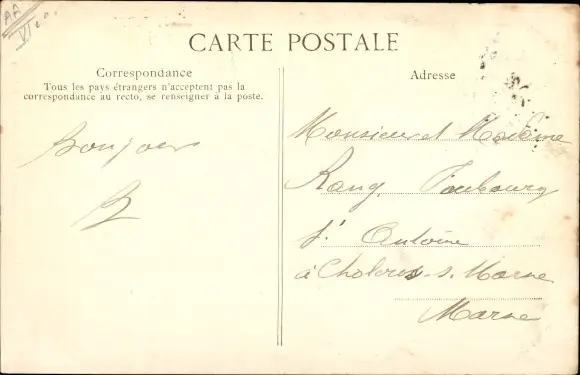 AA
VIe
CARTE POSTALE
Correspondance
Tous les pays étrangers n'acceptent pas la
correspondance au recto, se renseigner à la poste.
Bonjour
Adresse
Monsieur et Madame
Rang, Faubourg
St Antoine
à Chalons-s-Marne
Marne